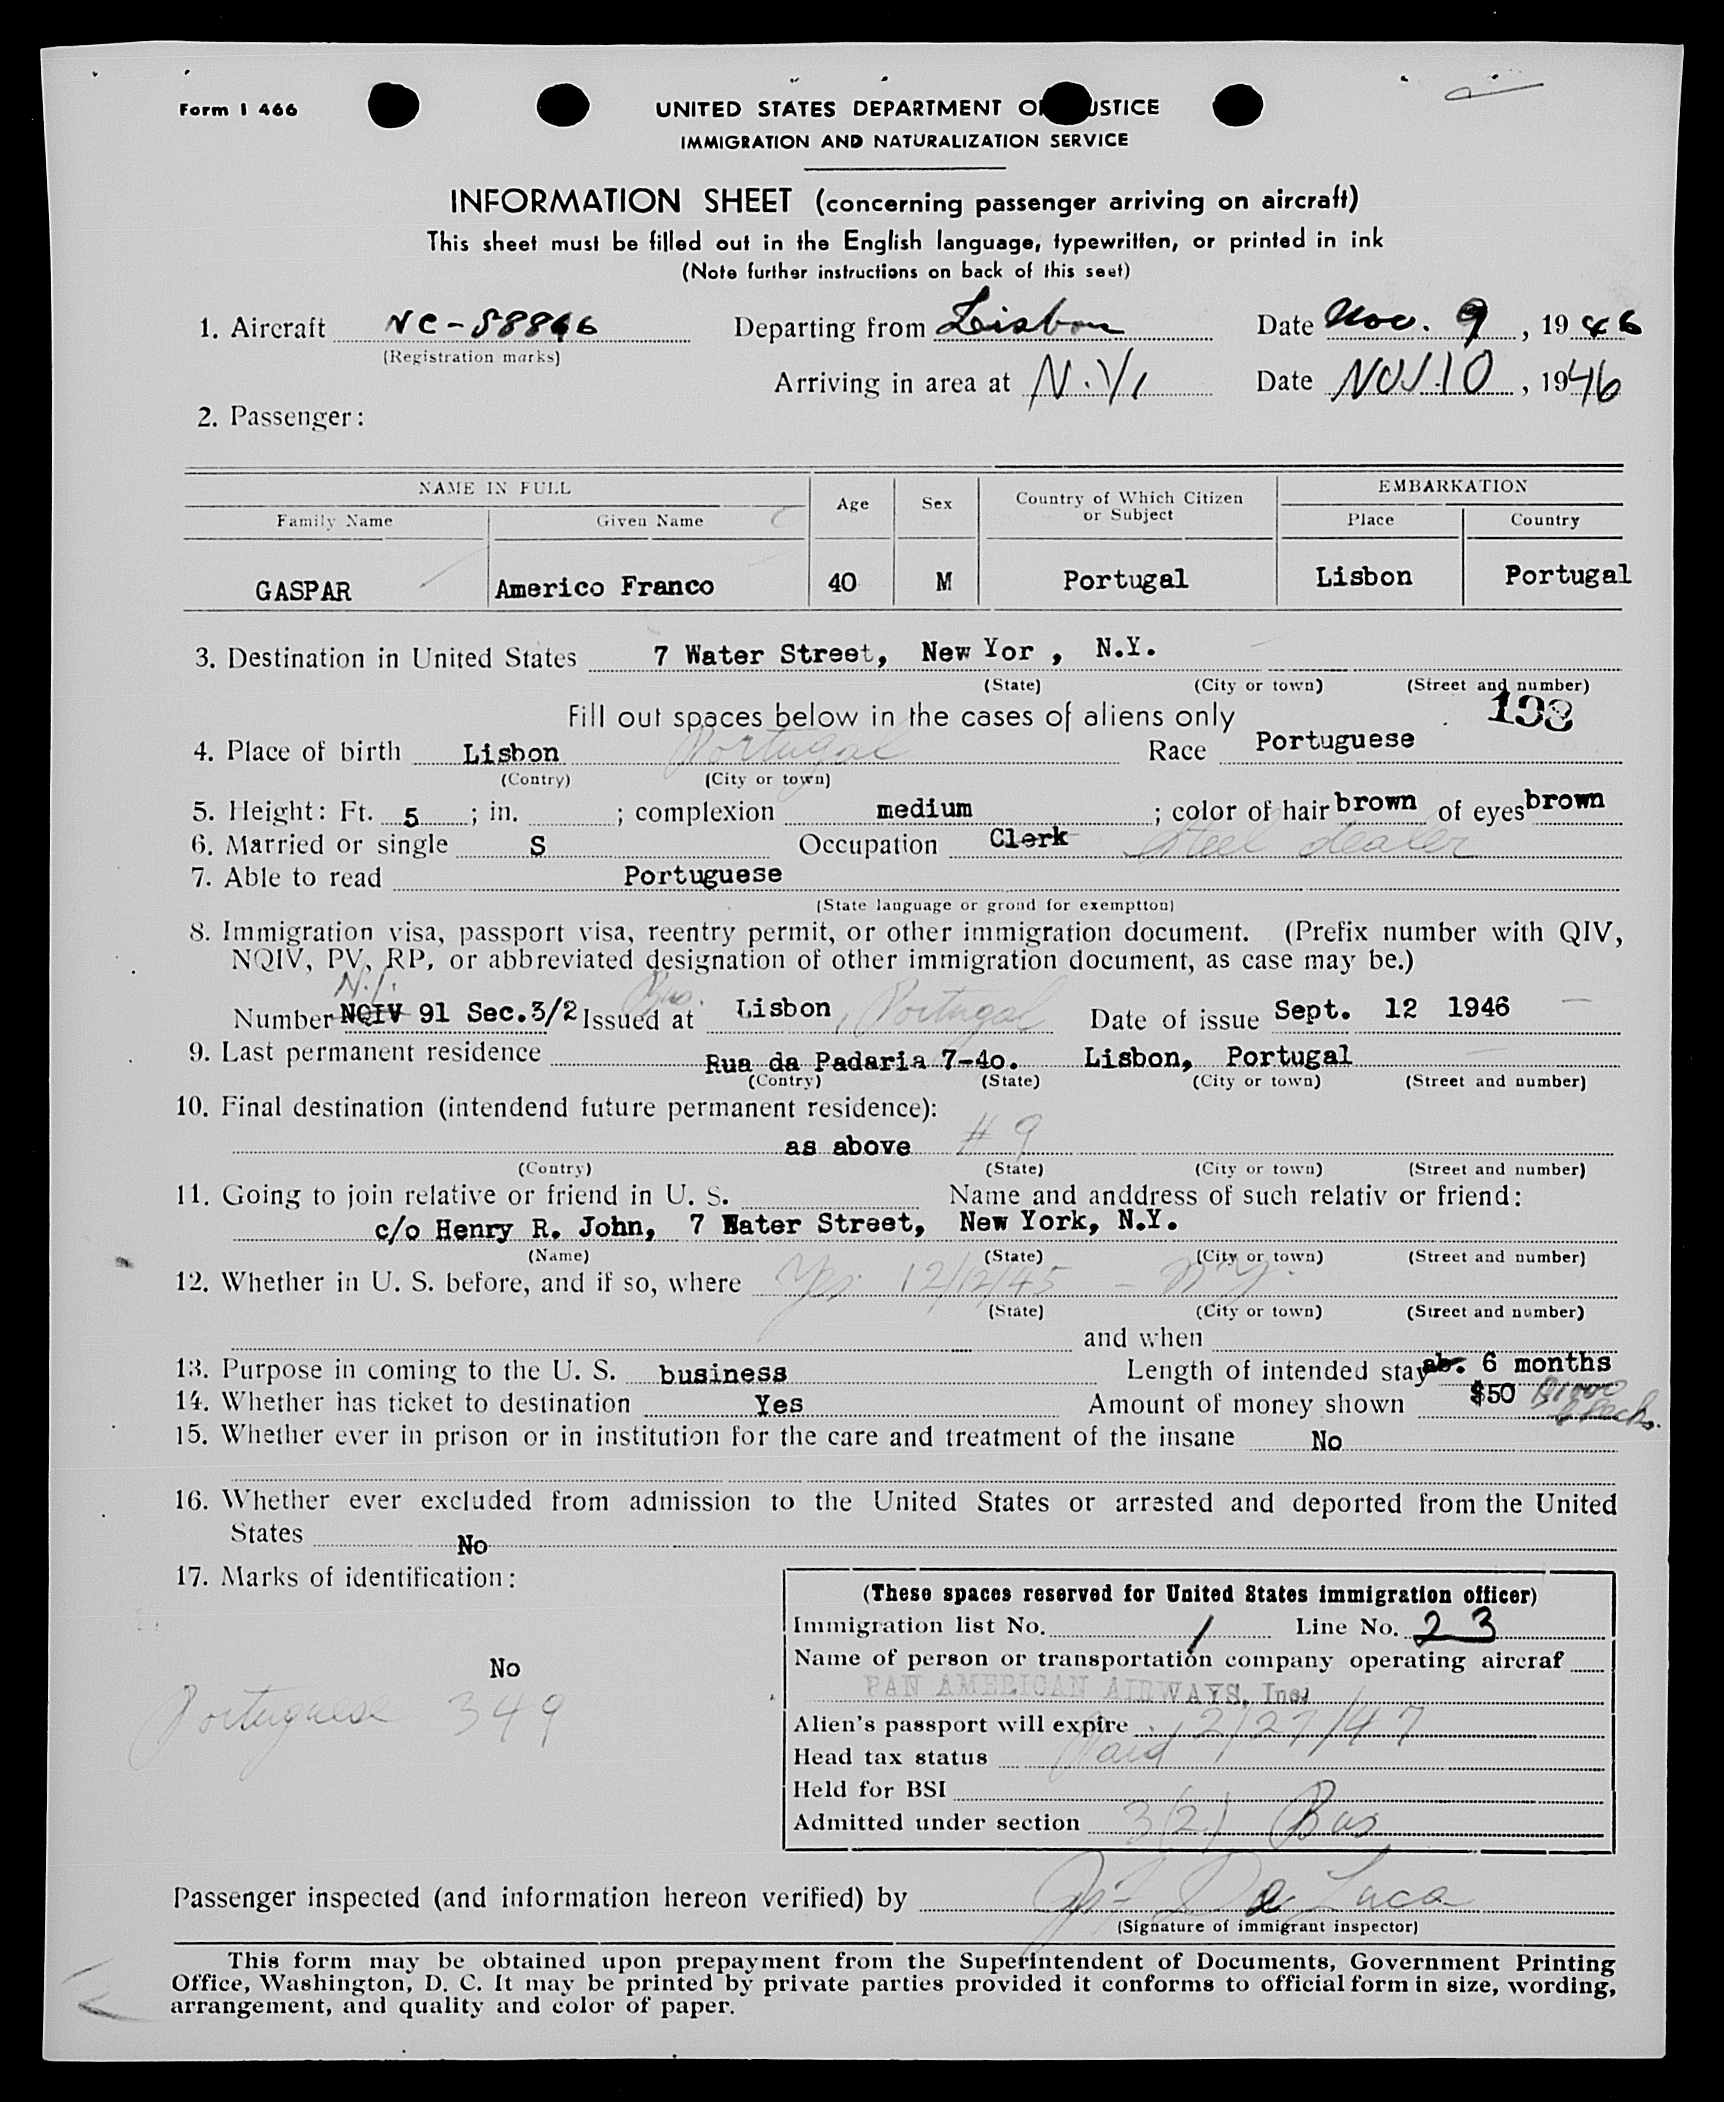 Form I 466
UNITED STATES DEPARTMENT OF JUSTICE
IMMIGRATION AND NATURALIZATION SERVICE
INFORMATION SHEET (concerning passenger arriving on aircraft)
This sheet must be filled out in the English language, typewritten, or printed in ink
(Note further instructions on back of this seet)
1. Aircraft NC-88846 Departing from Lisbon Date Nov. 9, 1946
(Registration marks)
Arriving in area at N.Y. Date NOV. 10, 1946
2. Passenger:
NAME IN FULL Age Sex Country of Which Citizen or Subject EMBARKATION
Family Name Given Name Place Country
GASPAR Americo Franco 40 M Portugal Lisbon Portugal
3. Destination in United States 7 Water Street, New Yor , N.Y.
(State) (City or town) (Street and number)
Fill out spaces below in the cases of aliens only 193
4. Place of birth Lisbon Portugal Race Portuguese
(Contry) (City or town)
5. Height: Ft. 5 ; in. ; complexion medium ; color of hair brown of eyes brown
6. Married or single S Occupation Clerk Steel dealer
7. Able to read Portuguese
(State language or grond for exemptton)
8. Immigration visa, passport visa, reentry permit, or other immigration document. (Prefix number with QIV,
NQIV, PV, RP, or abbreviated designation of other immigration document, as case may be.)
N.I. Bus.
Number NQIV 91 Sec.3/2 Issued at Lisbon, Portugal Date of issue Sept. 12 1946
9. Last permanent residence Rua da Padaria 7-4o. Lisbon, Portugal
(Contry) (State) (City or town) (Street and number)
10. Final destination (intendend future permanent residence):
as above # 9
(Contry) (State) (City or town) (Street and number)
11. Going to join relative or friend in U. S. Name and anddress of such relativ or friend:
c/o Henry R. John, 7 Water Street, New York, N.Y.
(Name) (State) (City or town) (Street and number)
12. Whether in U. S. before, and if so, where Yes 12/12/45 - N.Y.
(State) (City or town) (Street and number)
and when
13. Purpose in coming to the U. S. business Length of intended stay ab. 6 months
14. Whether has ticket to destination Yes Amount of money shown $50 $1000 checks.
15. Whether ever in prison or in institution for the care and treatment of the insane No
16. Whether ever excluded from admission to the United States or arrested and deported from the United
States No
17. Marks of identification:
No
Portuguese 349
(These spaces reserved for United States immigration officer)
Immigration list No. 1 Line No. 23
Name of person or transportation company operating aircraf
PAN AMERICAN AIRWAYS, Inc.
Alien's passport will expire 12/27/47
Head tax status Paid
Held for BSI
Admitted under section 3(2) Bus
Passenger inspected (and information hereon verified) by De Luca
(Signature of immigrant inspector)
This form may be obtained upon prepayment from the Superintendent of Documents, Government Printing
Office, Washington, D. C. It may be printed by private parties provided it conforms to official form in size, wording,
arrangement, and quality and color of paper.